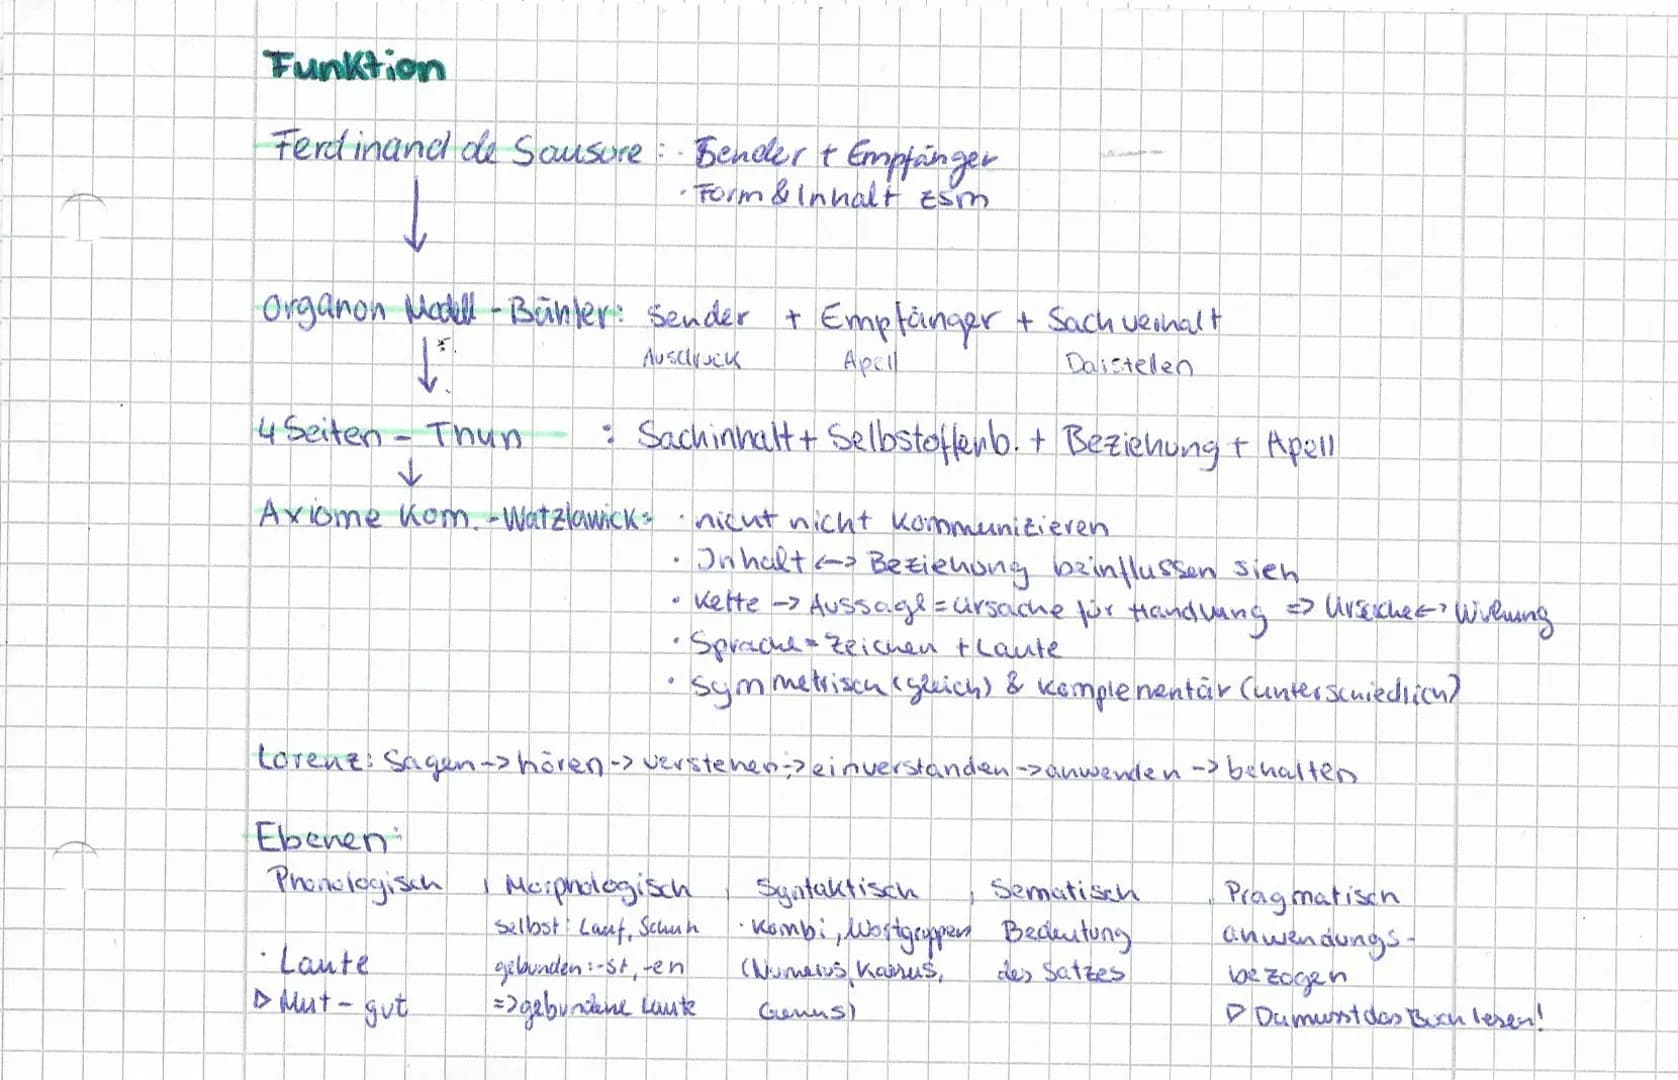 Funktion
Ferdinand de Sausure: · Sender + Empfänger
· Form & Inhalt zsm
Organon Modell - Bühler: Sender + Empfänger + Sachverhalt
Ausdruck Apell Darstellen
4 Seiten - Thun : Sachinhalt + Selbstoffenb. + Beziehung + Apell
Axiome Kom. - Watzlawick: · nicht nicht kommunizieren
· Inhalt <-> Beziehung beinflussen sich
· Kette -> Aussage = Ursache für Handlung => Ursache <-> Wirkung
· Sprache = Zeichen + Laute
· Symmetrisch (gleich) & Komplementär (unterschiedlich)
Lorenz: Sagen -> hören -> verstehen -> einverstanden -> anwenden -> behalten
Ebenen:
Phonologisch , Morphologisch , Syntaktisch , Sematisch , Pragmatisch
selbst: Lauf, Schuh · Kombi, Wortgruppen Bedeutung anwendungs-
· Laute gebunden: -st, -en (Numerus, Kasus, des Satzes bezogen
▷ Mut - gut => gebundene Laute Genus) ▷ Du musst das Buch lesen!